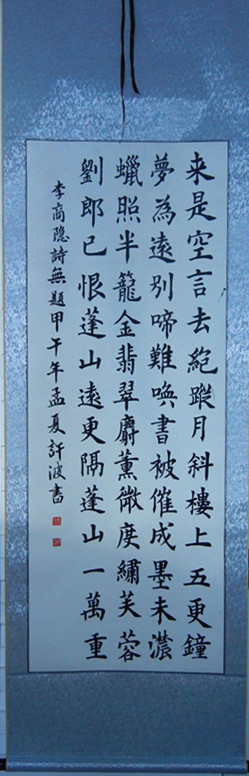 来是空言去絶蹤月斜樓上五更鐘
夢為遠别啼難喚書被催成墨未濃
蠟照半籠金翡翠麝薰微度繡芙蓉
劉郎已恨蓬山遠更隔蓬山一萬重
李商隐詩無題甲午年孟夏許波書